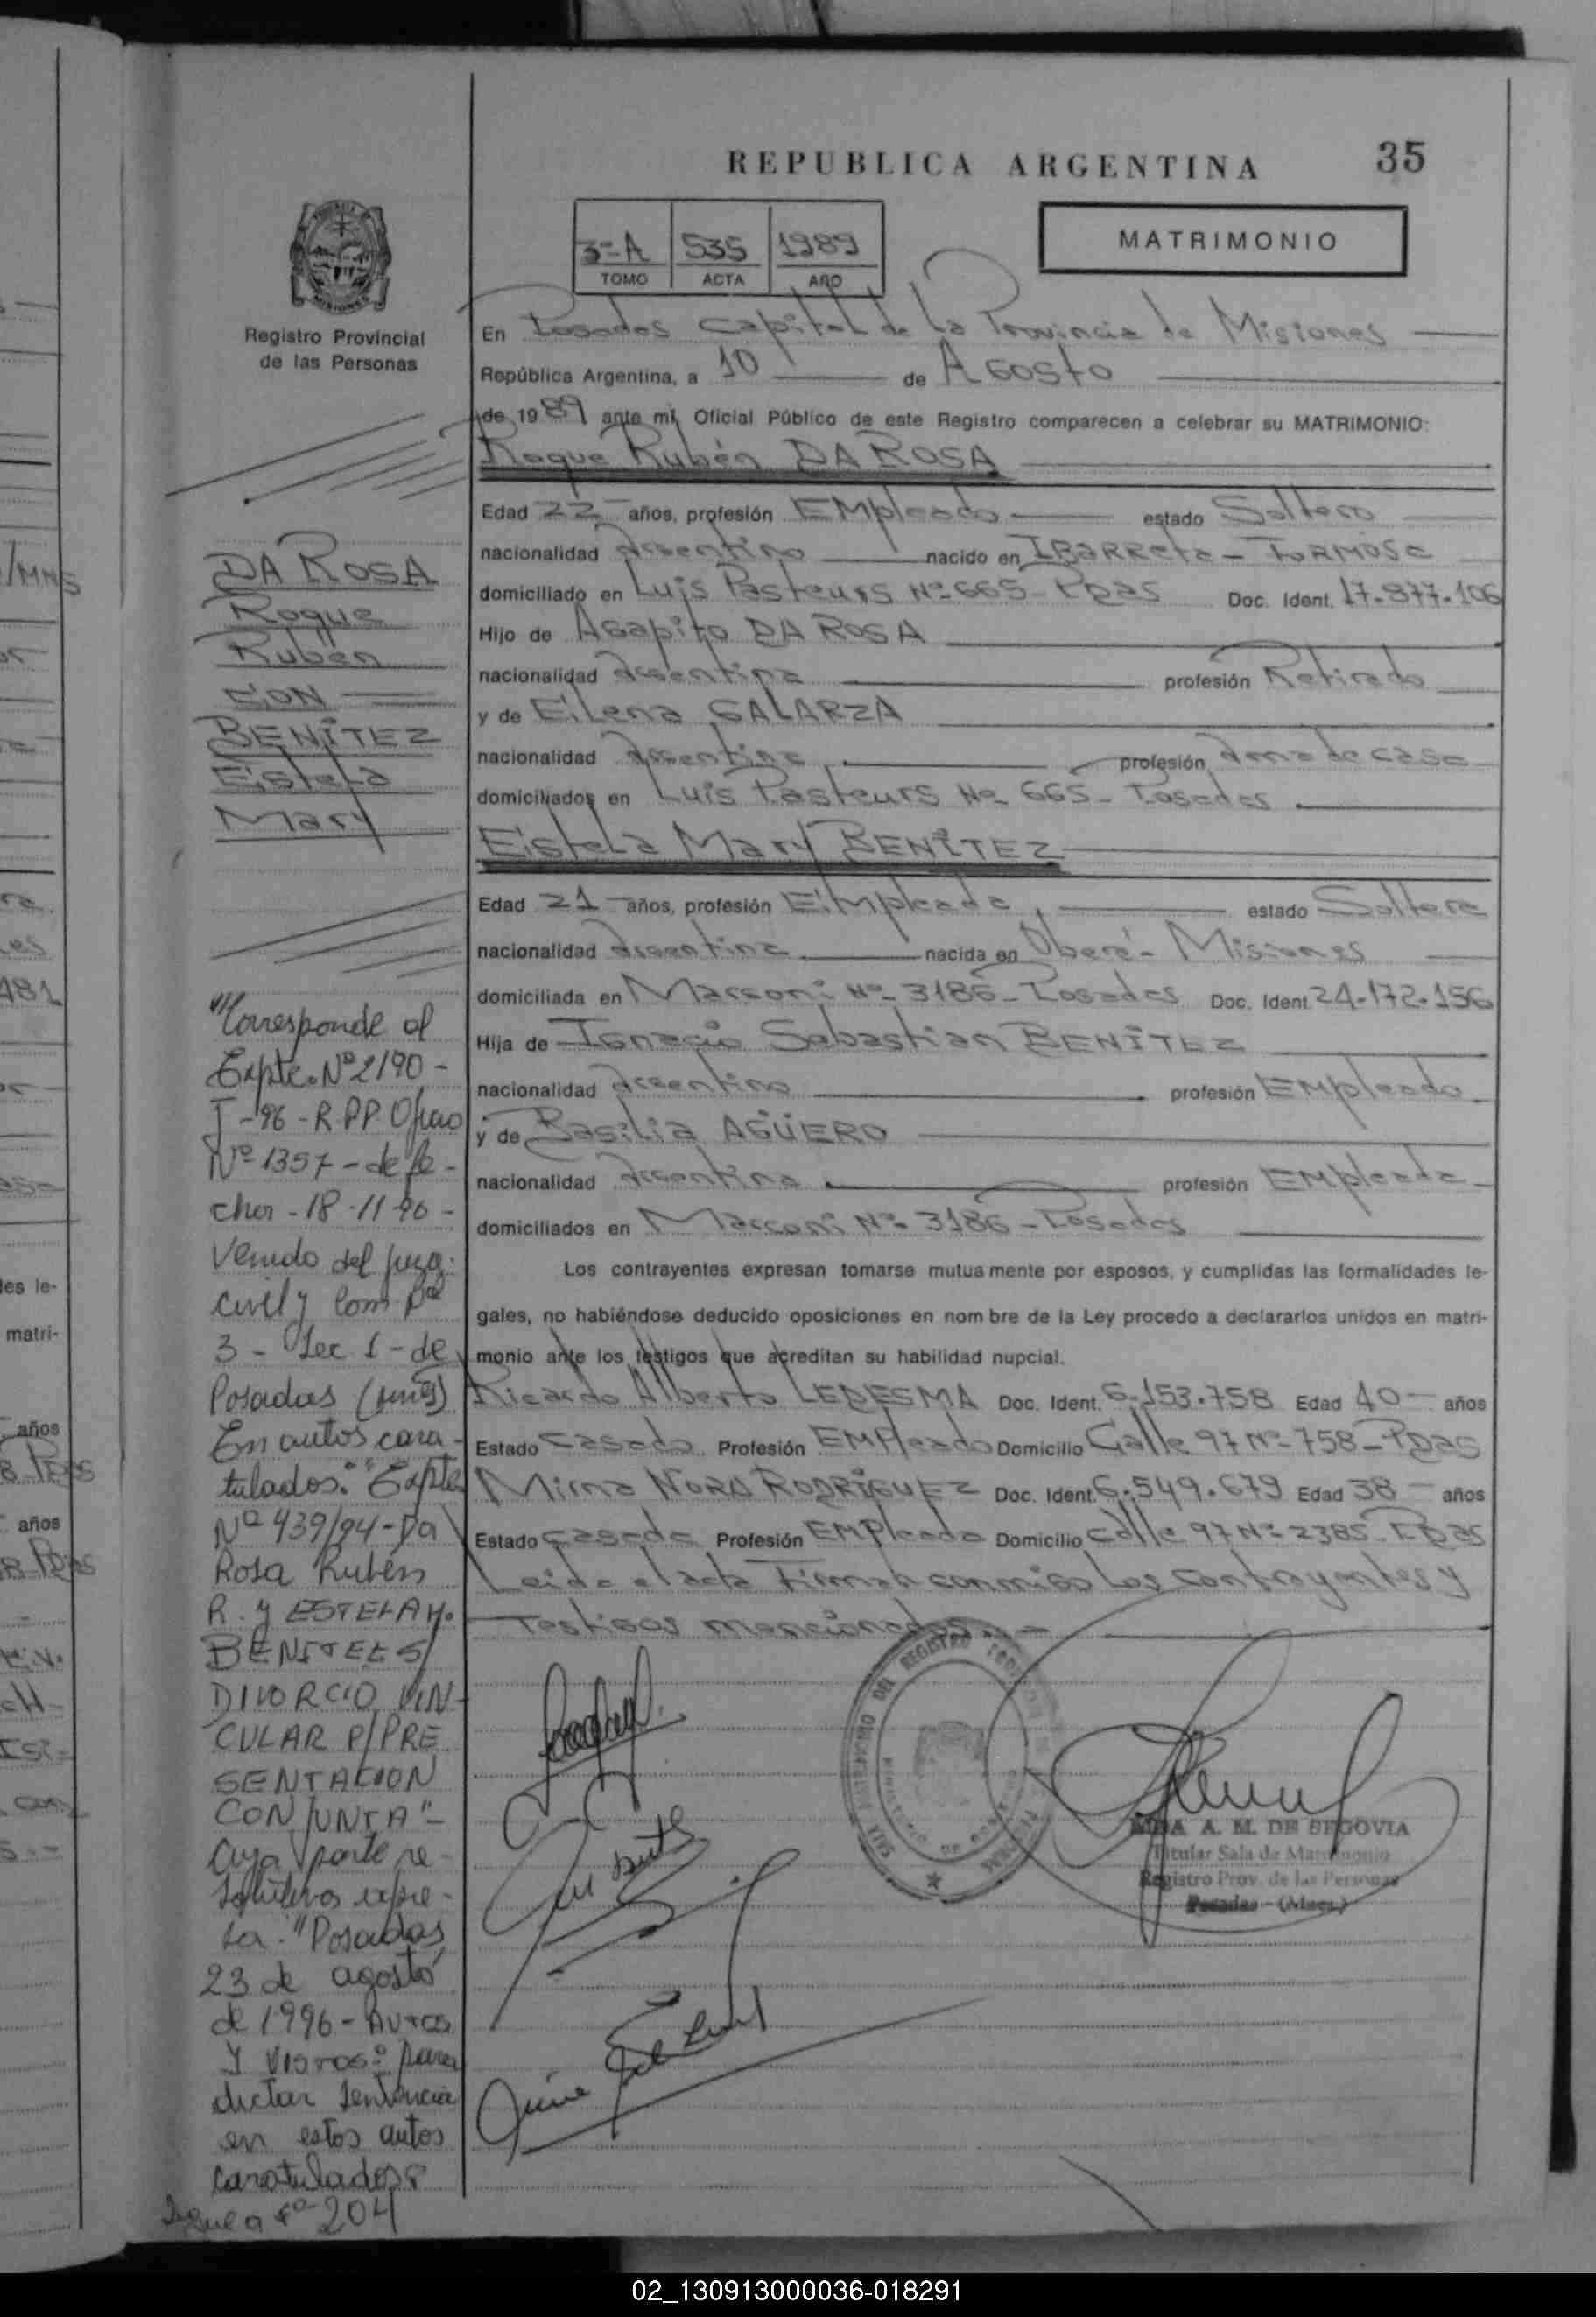 REPUBLICA ARGENTINA 35
3=A 535 1989
TOMO ACTA AÑO
MATRIMONIO
Registro Provincial
de las Personas
En Posadas Capital de la Provincia de Misiones
República Argentina, a 10 de Agosto
de 1989 ante mí, Oficial Público de este Registro comparecen a celebrar su MATRIMONIO:
Roque Rubén DA ROSA
Edad 22 años, profesión EMpleado estado Soltero
nacionalidad Argentino nacido en IBARReta - FORMOSa
domiciliado en Luis Pasteurs Nº 665 - Pdas Doc. Ident. 17.877.106
Hijo de Agapito DA ROSA
nacionalidad Argentina profesión Retirado
y de Elena GALARZA
nacionalidad Argentina profesión Ama de casa
domiciliados en Luis Pasteurs Nº 665 - Posadas
Estela Mary BENÍTEZ
Edad 21 años, profesión EMpleada estado Soltera
nacionalidad Argentina nacida en Oberá - Misiones
domiciliada en Marconi Nº 3186 - Posadas Doc. Ident 24.172.156
Hija de Ignacio Sebastian BENÍTEZ
nacionalidad Argentino profesión EMpleado
y de Basilia AGÜERO
nacionalidad Argentina profesión EMpleada
domiciliados en Marconi Nº 3186 - Posadas
Los contrayentes expresan tomarse mutua mente por esposos, y cumplidas las formalidades le-
gales, no habiéndose deducido oposiciones en nom bre de la Ley procedo a declararlos unidos en matri-
monio ante los testigos que acreditan su habilidad nupcial.
Ricardo Alberto LEDESMA Doc. Ident. 6.153.758 Edad 40 años
Estado Casado Profesión EMPleado Domicilio Calle 97 Nº 758 - Pdas
Mirna NORA RODRÍGUEZ Doc. Ident. 6.549.679 Edad 38 años
Estado Casada Profesión EMPleada Domicilio Calle 97 Nº 2385 - Pdas
Leida el acta Firman conmigo Los Contrayentes y
Testigos mencionados
A. M. DE SEGOVIA
Titular Sala de Matrimonio
Registro Prov. de las Personas
Posadas - (Mnes.)
DA ROSA
Roque
Rubén
CON
BENÍTEZ
Estela
Mary
"Corresponde al
Expte. Nº 2190 -
J - 96 - R.P.P. Oficio
Nº 1357 - de fe -
cha - 18 - 11 - 96 -
Venido del Juzg.
Civil y Com. Nº
3 - Sec 1 - de
Posadas (Mnes)
En autos cara -
tulados: "Expte
Nº 939/94 - Da
Rosa Rubén
R. y ESTELA M.
BENITEZ S/
DIVORCIO VIN -
CULAR P/PRE
SENTACION
CONJUNTA" -
Cuya parte re -
solutiva expre -
sa: "Posadas,
23 de agosto
de 1996 - AUTOS
Y VISTOS: para
dictar sentencia
en estos autos
caratulados:
Sigue a Fº 204
años
años
les le-
matri-
02_130913000036-018291